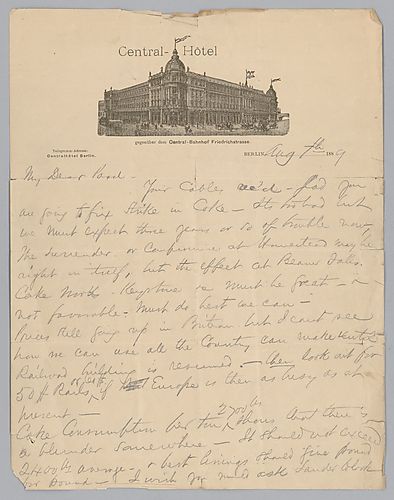 Central-Hôtel
gegenüber dem Central-Bahnhof Friedrichstrasse.
Telegramm-Adresse:
Centralhôtel Berlin.
BERLIN, Aug 7th 1889
My Dear
Your Cables rec'd - Glad you
are going to fix Strike in Coke - Its too bad but
we must expect three years or so of trouble now
The surrender - or Compromise at Homestead may be
right in itself, but the effect at Beaver Falls.
Coke North. Keystone &c Must be great - &
not favorable - Must do best we can -
Prices still going up in Britain but I cant see
how we can use all the Country can make until
Railroad building is resumed. - then look out for
50 $ Rails, if Europe is then as busy as at
present -
Coke Consumption per ton 2700 lbs shows that there is
a blunder somewhere - It should not exceed
2400 lbs average - & best linings should give pound
for pound - I wish you would ask